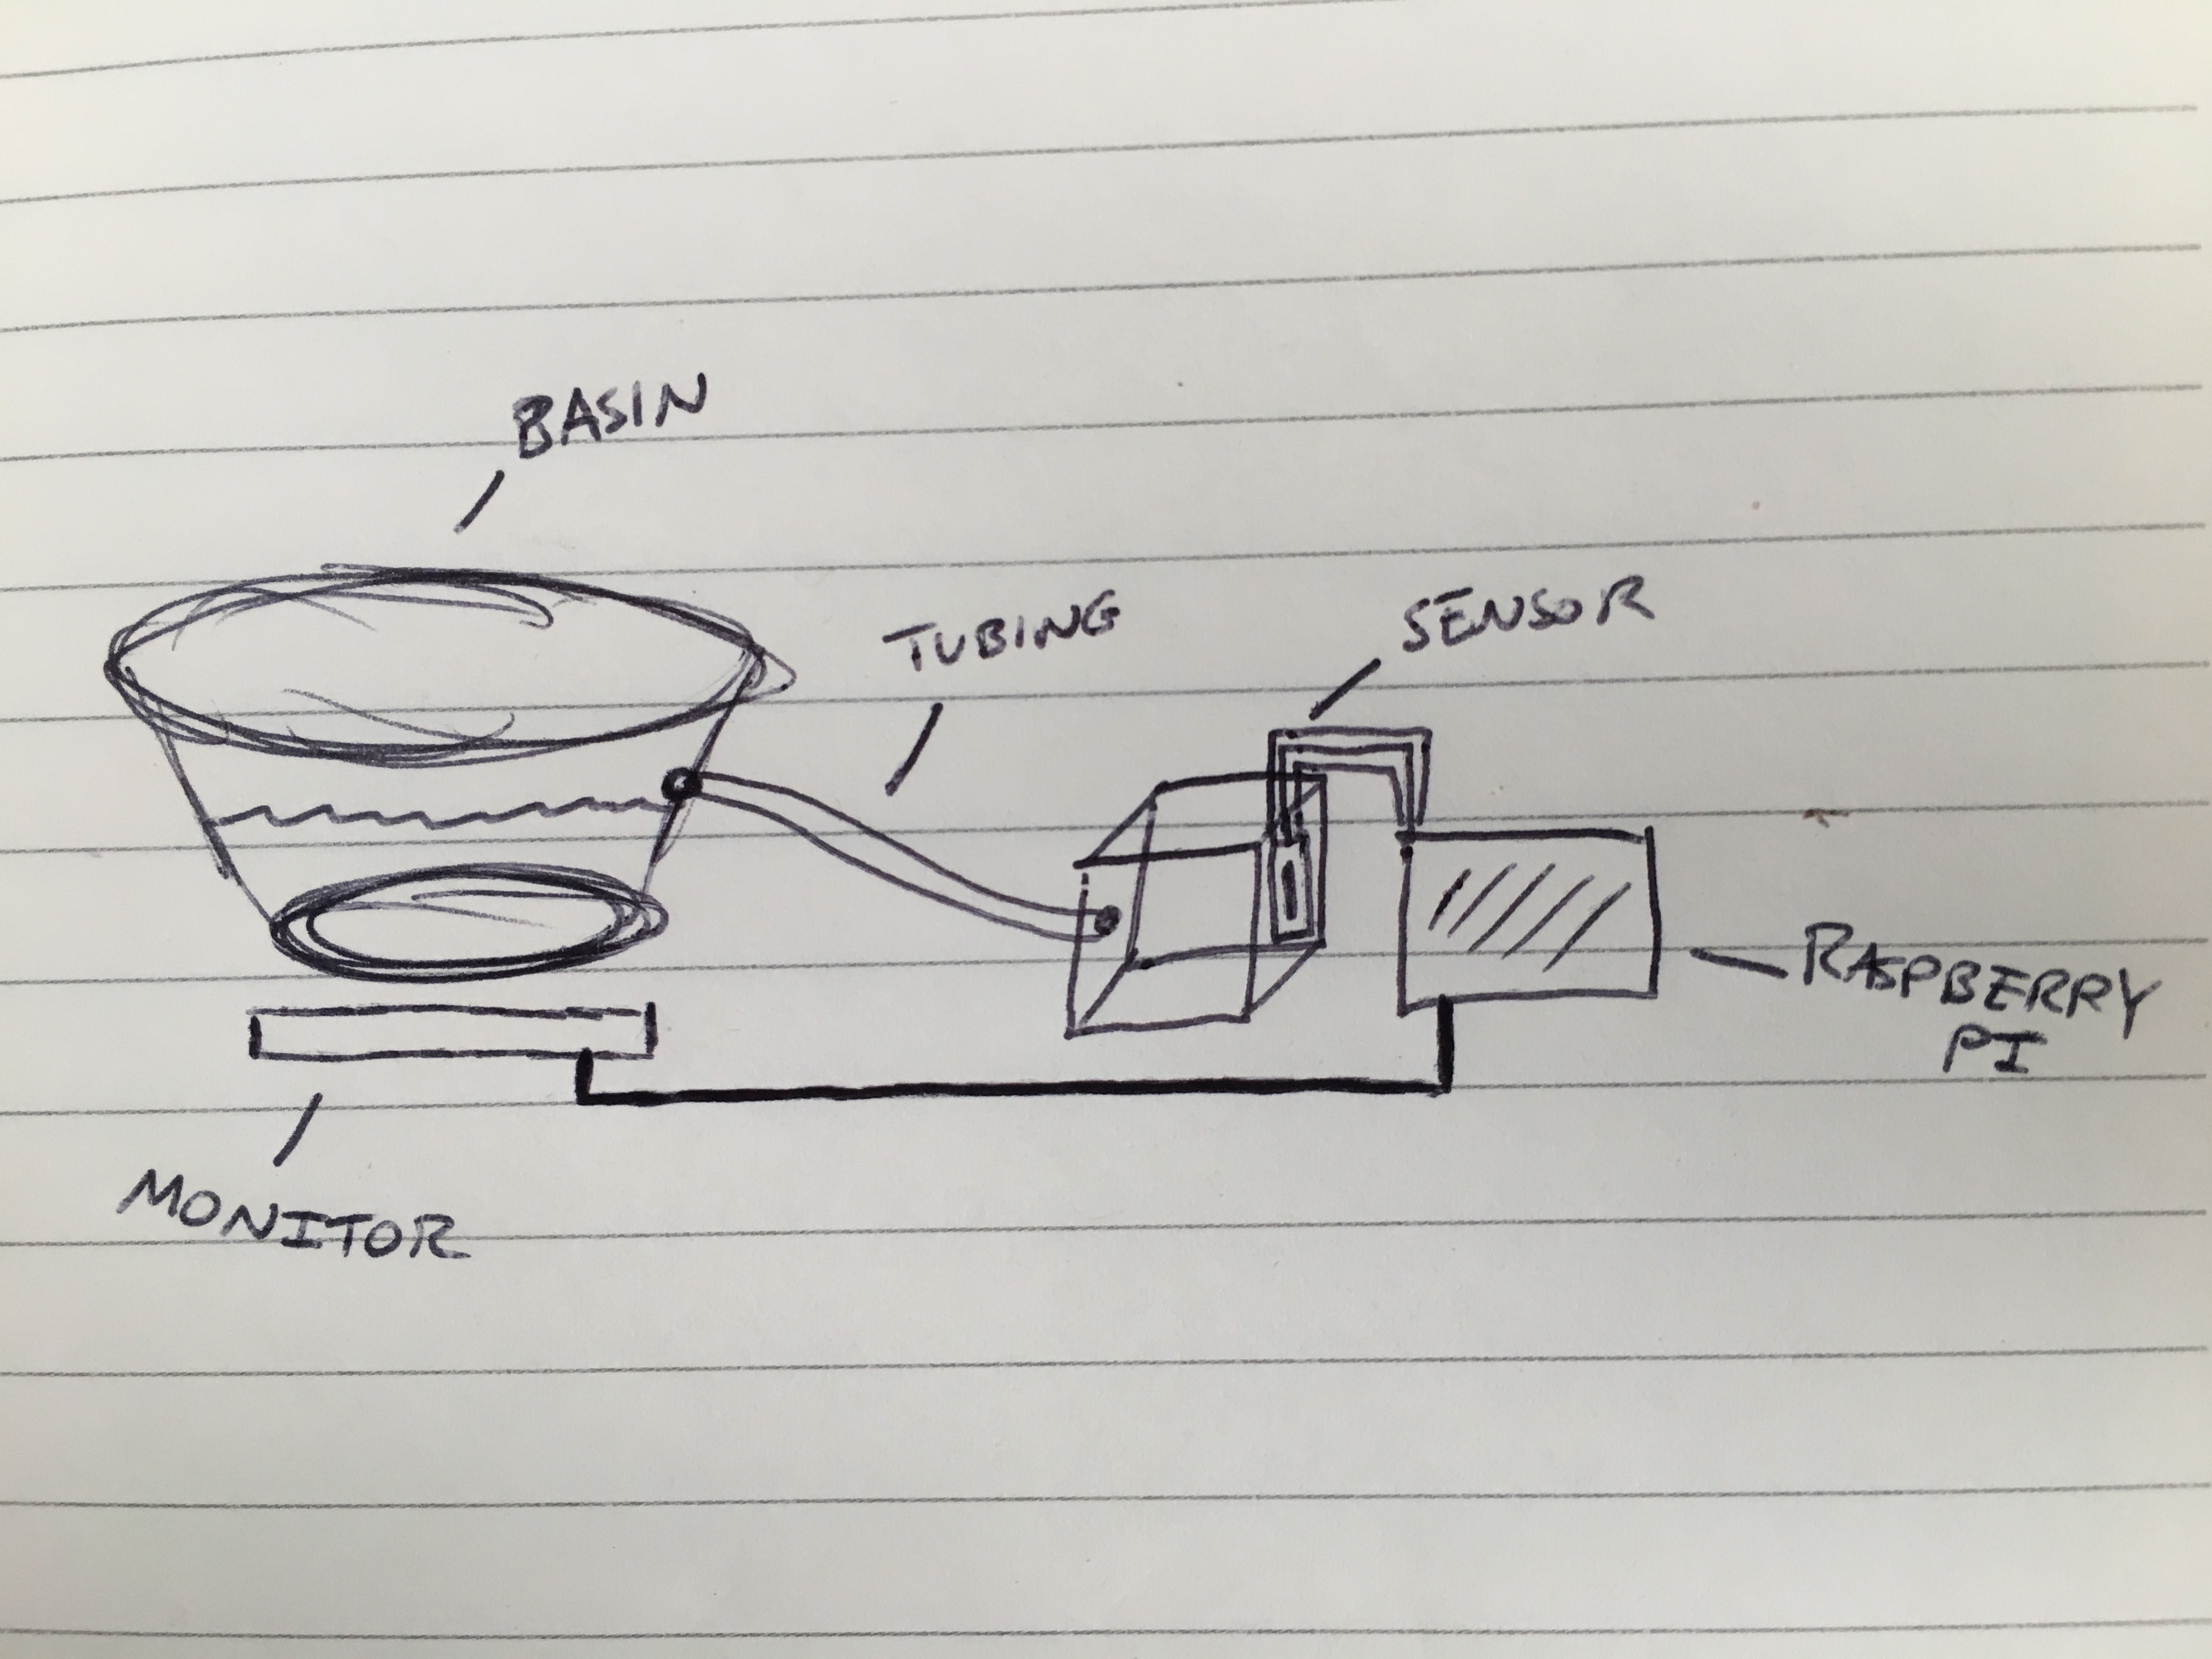 BASIN
TUBING
SENSOR
RASPBERRY
PI
MONITOR